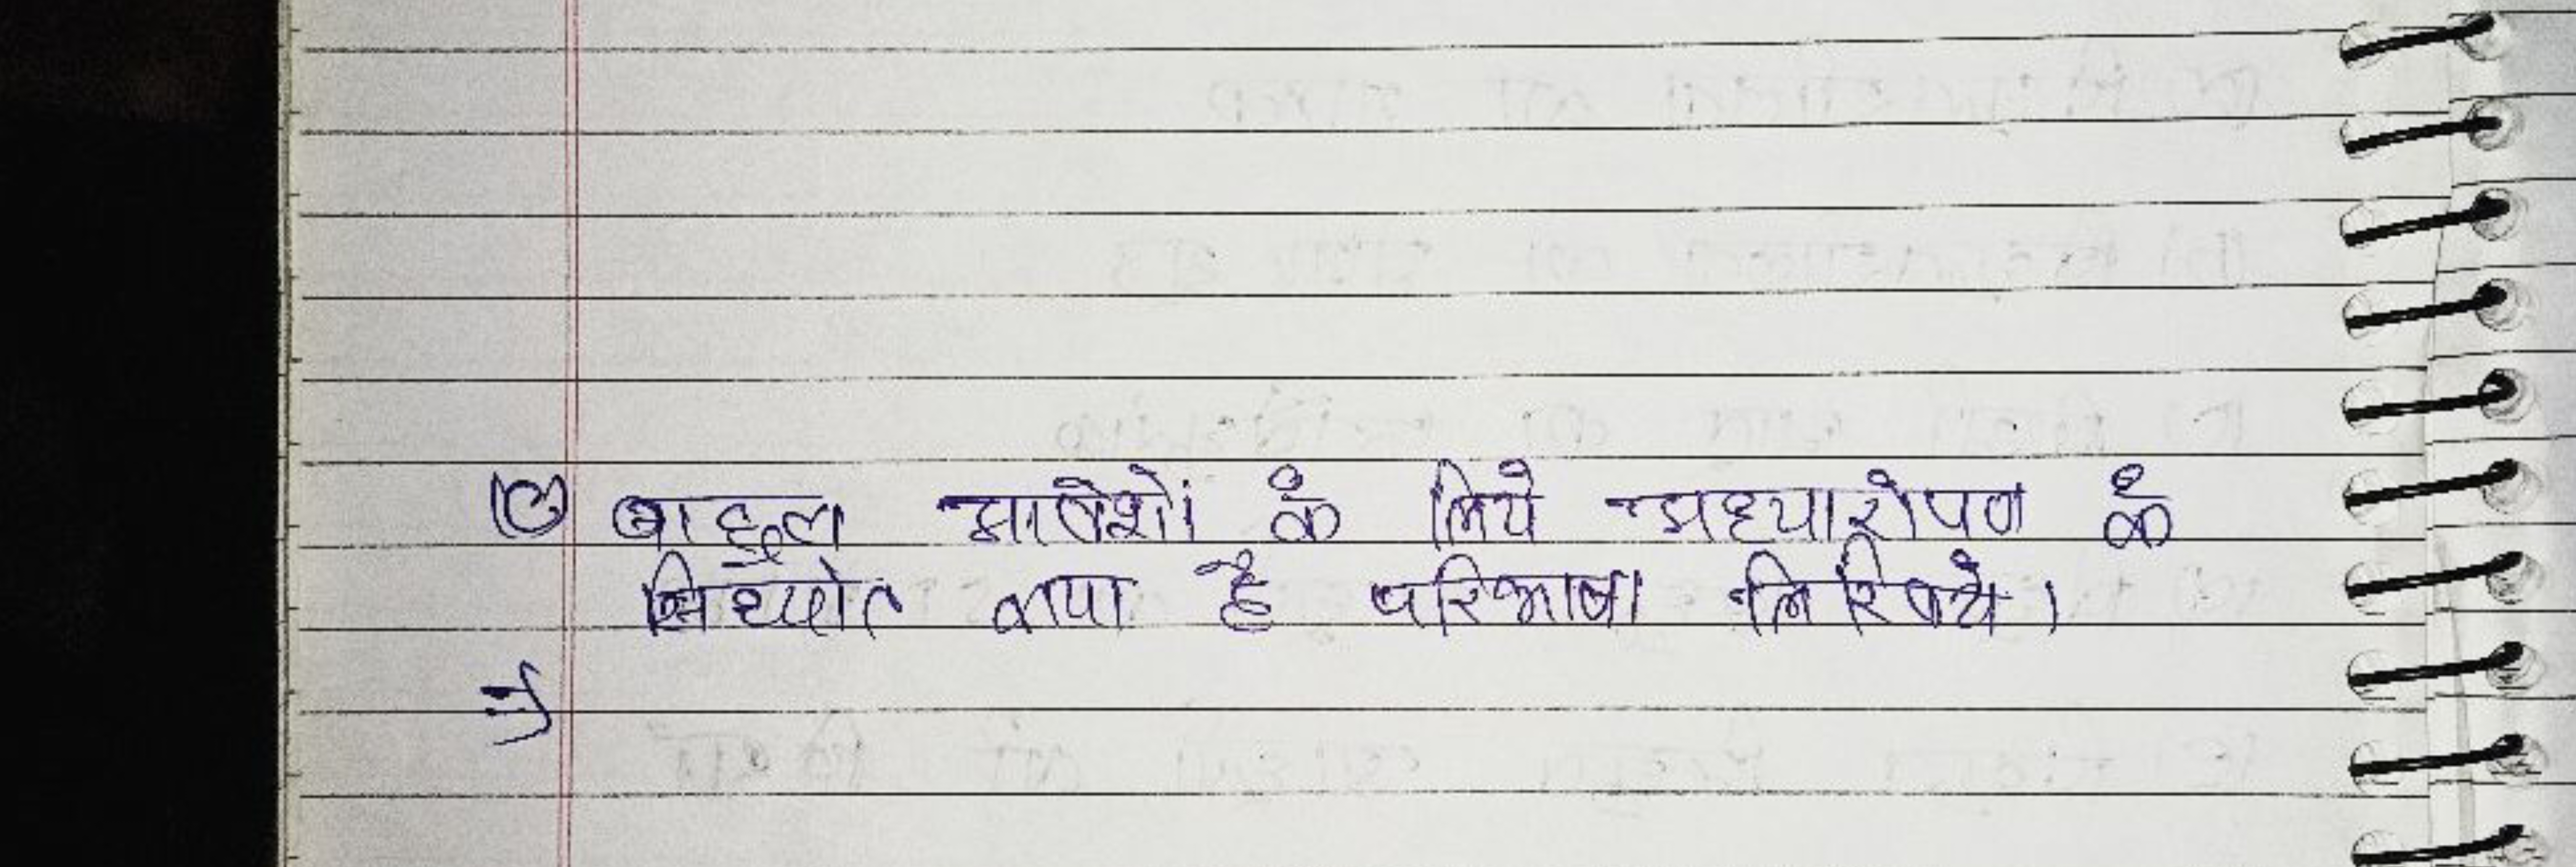 (c) बाहुल आवेशों के लिये अध्यारोपण के
सिध्दांत क्या है परिभाषा लिखिये।
⇒